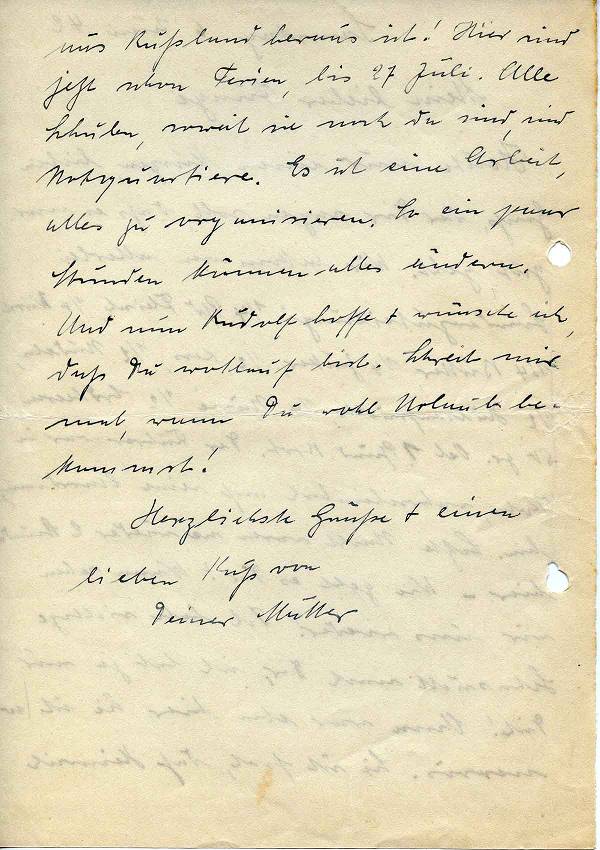 aus Rußland heraus ist! Hier sind
jetzt schon Ferien, bis 27 Juli. Alle
Schulen, soweit sie noch da sind, sind
Notquartiere. Es ist eine Arbeit,
alles zu organisieren. So ein paar
Stunden können alles ändern.
Und nun Rudolf hoffe + wünsche ich,
daß Du wohlauf bist. Schreib mir
mal, wann Du wohl Urlaub be-
kommst!
Herzlichste Grüße + einen
lieben Kuß von
Deiner Mutter